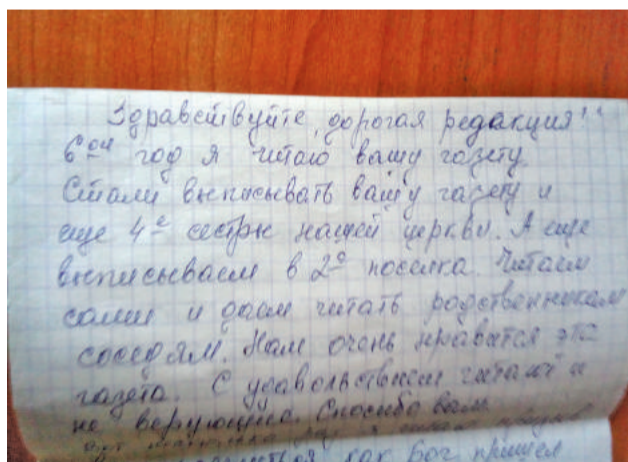 Здравствуйте, дорогая редакция!"
6ой год я читаю вашу газету.
Стали выписывать вашу газету и
еще 4е сестры нашей церкви. А еще
выписываем в 2а поселка. Читаем
сами и даем читать родственникам
соседям. Нам очень нравится эта
газета. С удовольствием читают и
не верующие. Спасибо вам
как Бог пришел